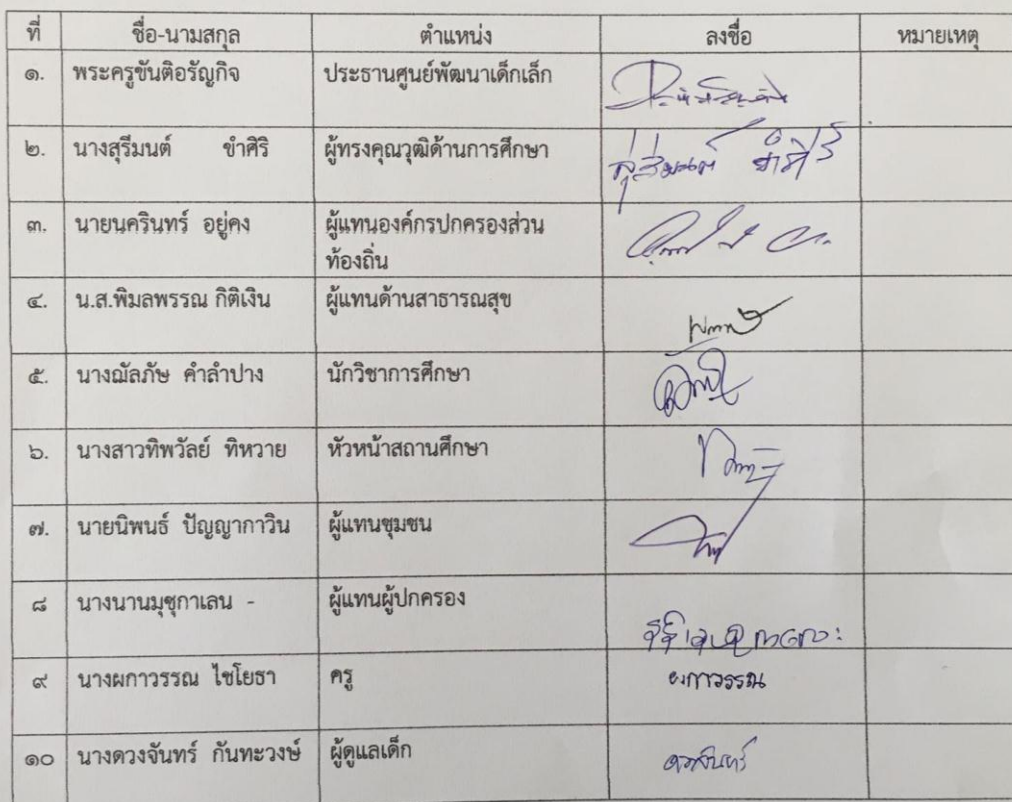 ที่ ชื่อ-นามสกุล ตำแหน่ง ลงชื่อ หมายเหตุ
๑. พระครูขันติอรัญกิจ ประธานศูนย์พัฒนาเด็กเล็ก
๒. นางสุรีมนต์ ขำศิริ ผู้ทรงคุณวุฒิด้านการศึกษา สุรีมนต์ ขำศิริ
๓. นายนครินทร์ อยู่คง ผู้แทนองค์กรปกครองส่วน
ท้องถิ่น
๔. น.ส.พิมลพรรณ กิติเงิน ผู้แทนด้านสาธารณสุข
๕. นางฌัลภัษ คำลำปาง นักวิชาการศึกษา
๖. นางสาวทิพวัลย์ ทิหวาย หัวหน้าสถานศึกษา
๗. นายนิพนธ์ ปัญญากาวิน ผู้แทนชุมชน
๘ นางนานมุชุกาเลน - ผู้แทนผู้ปกครอง
๙ นางผกาวรรณ ไชโยธา ครู ผกาวรรณ
๑๐ นางดวงจันทร์ กันทะวงษ์ ผู้ดูแลเด็ก ดวงจันทร์